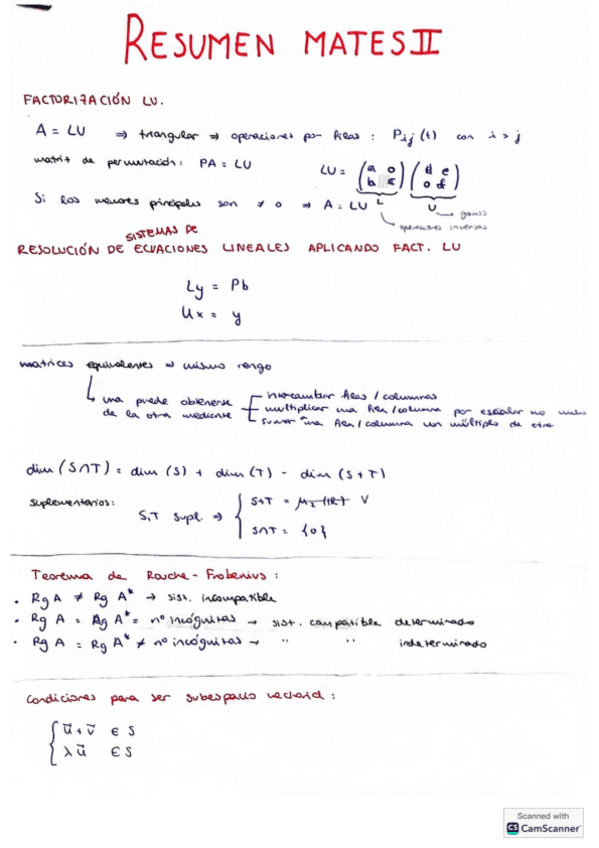 RESUMEN MATES II
FACTORIZACIÓN LU.
A = LU ⇒ triangular ⇒ operaciones por filas : Pij (t) con i > j
matriz de permutación: PA = LU
LU = (a 0 / b c) (d e / 0 f)
L U → gauss
→ operaciones inversas
Si los menores principales son ≠ 0 ⇒ A = LU
SISTEMAS DE
RESOLUCIÓN DE ECUACIONES LINEALES APLICANDO FACT. LU
Ly = Pb
Ux = y
matrices equivalentes ⇒ mismo rango
↳ una puede obtenerse de la otra mediante
intercambiar filas / columnas
multiplicar una fila / columna por escalar no nulo
sumar una fila / columna un múltiplo de otra
dim (S∩T) = dim (S) + dim (T) - dim (S+T)
suplementarios:
S,T supl. ⇒ { S+T = V
S∩T = {0}
Teorema de Rouche - Frobenius :
• Rg A ≠ Rg A* → sist. incompatible
• Rg A = Rg A* = nº incógnitas → sist. compatible determinado
• Rg A = Rg A* ≠ nº incógnitas → " " indeterminado
Condiciones para ser subespacio vectorial :
{ u⃗ + v⃗ ∈ S
λu⃗ ∈ S
Scanned with
CS CamScanner